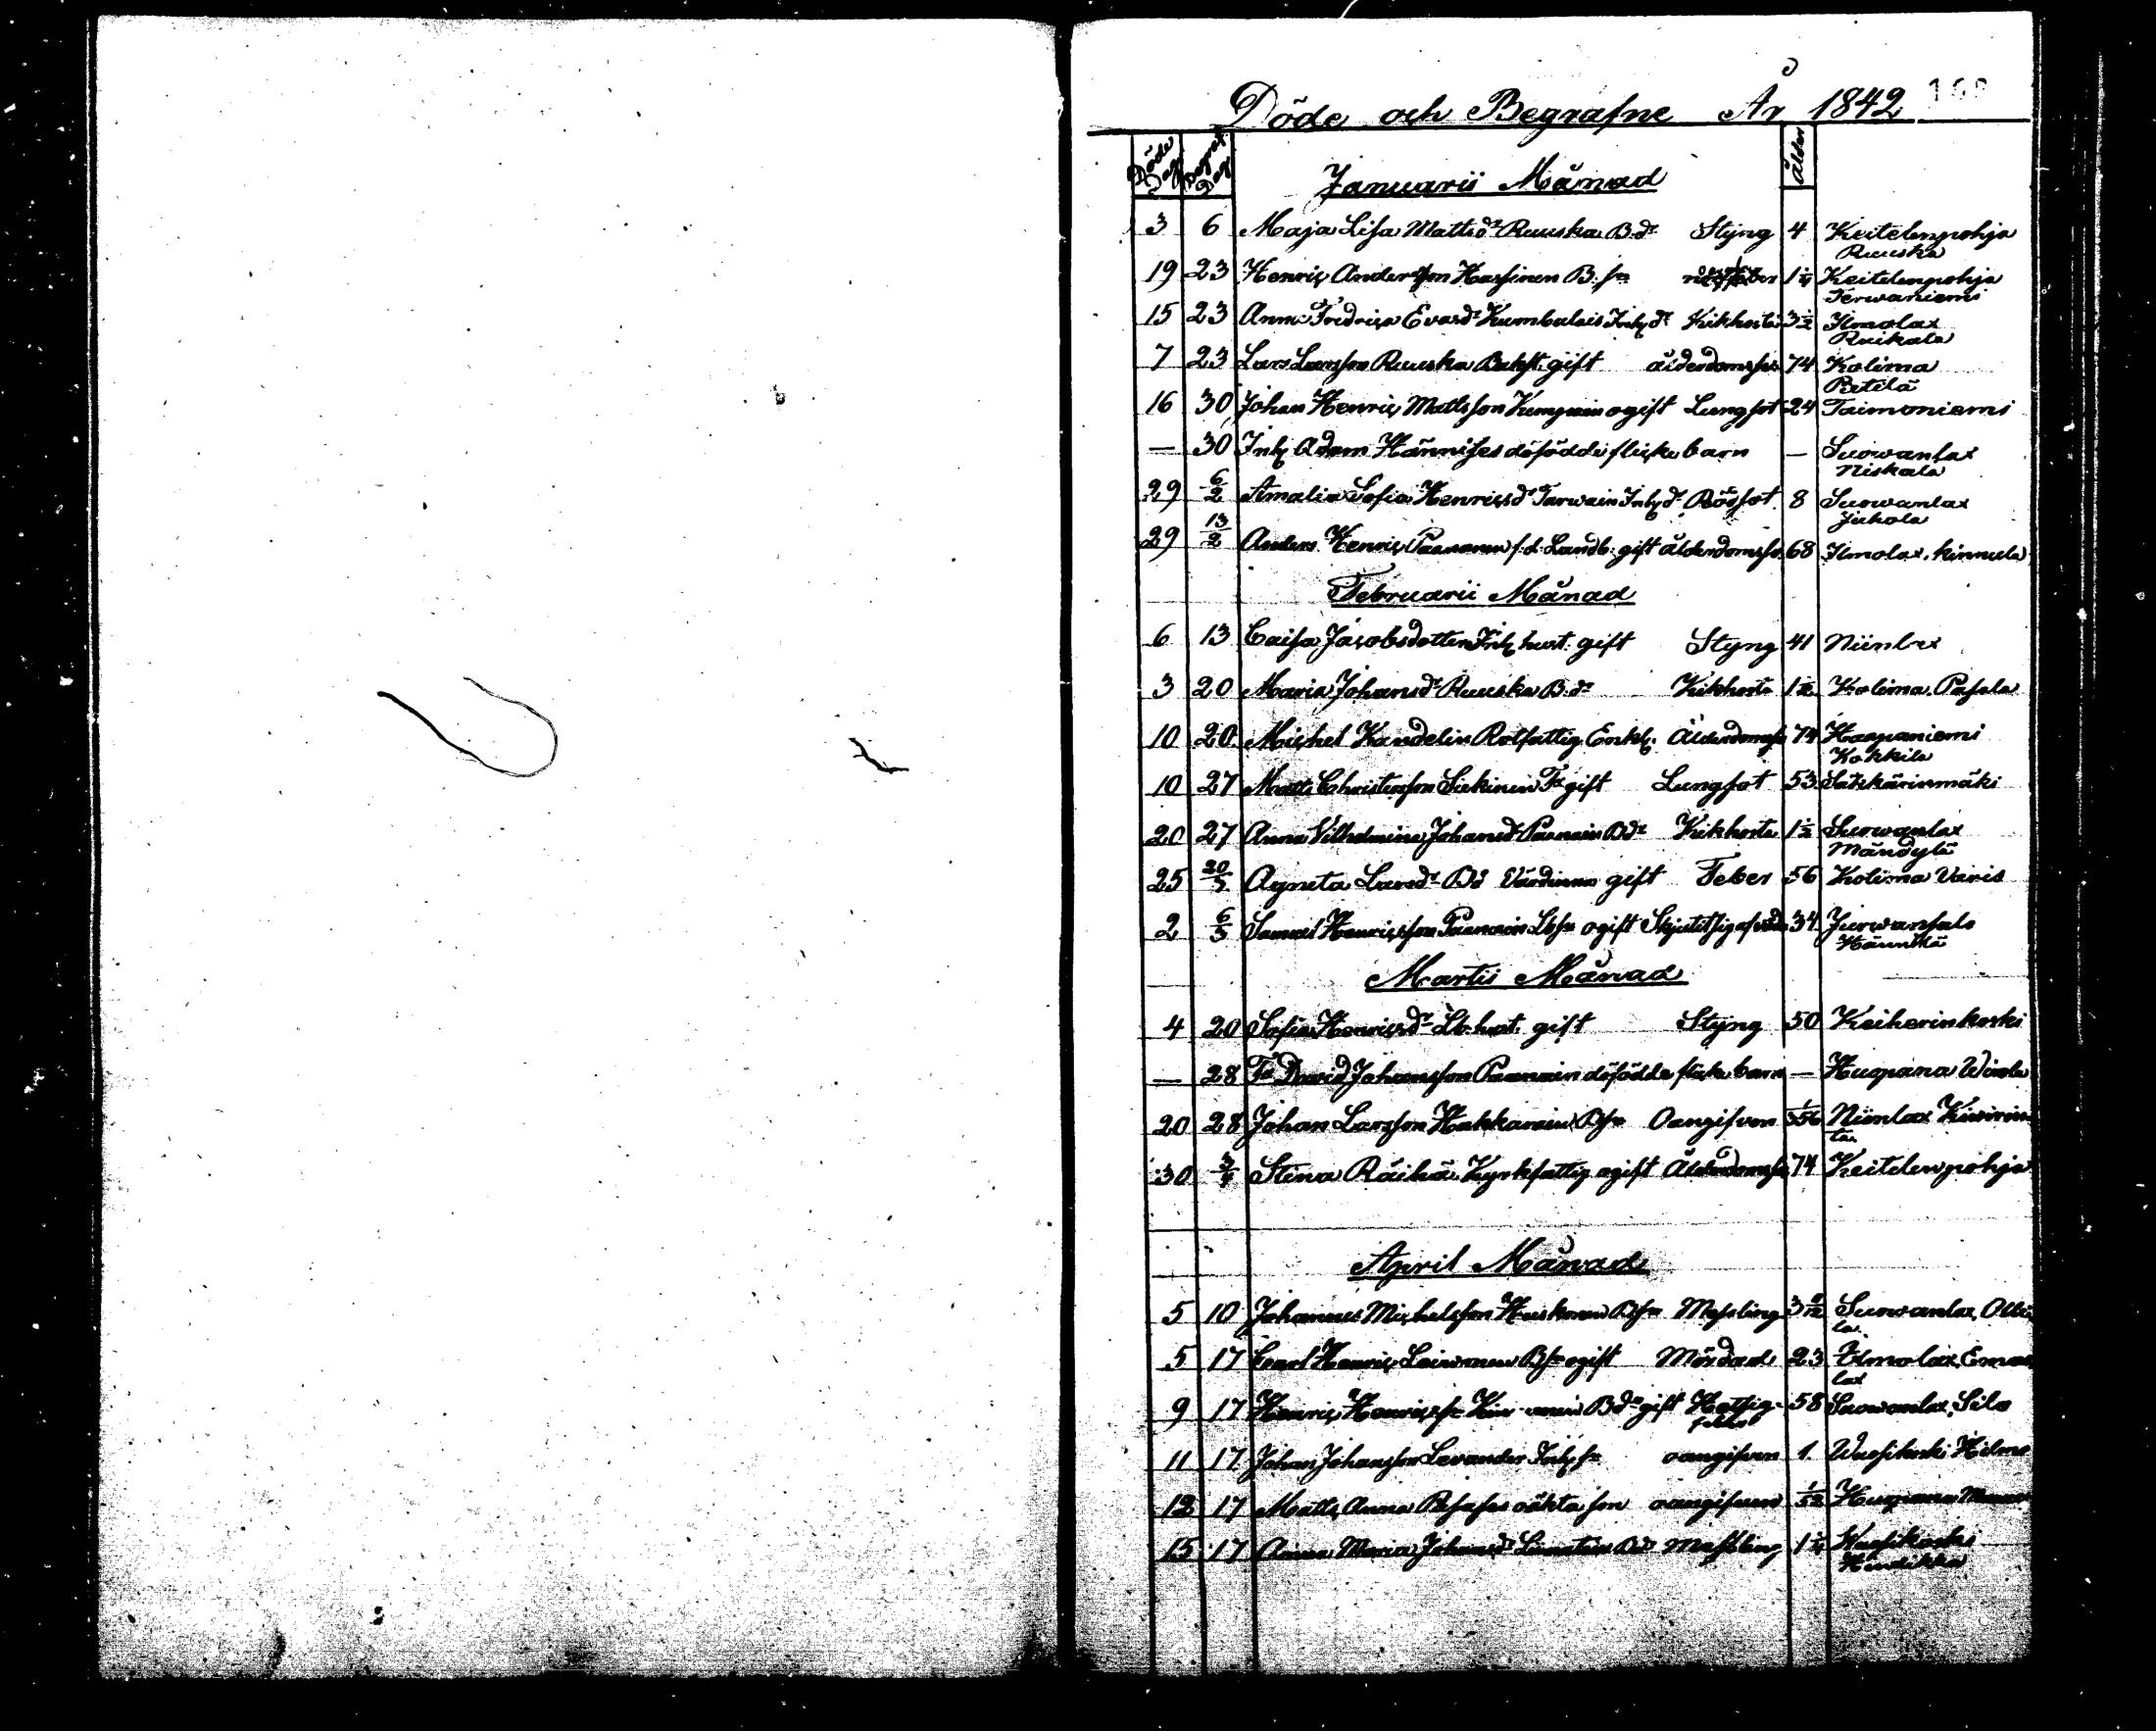 Döde och Begrafne År 1842
Döde Dag Begraf. Dag Ålder
Januarii Månad
3 6 Maja Lisa Mattsdr Ruuska B.dr Styng 4 Keitelenpohja
Ruuska
19 23 Henric Andersson Hassinen B. sn 1 1/4 Keitelenpohja
Terwaniemi
15 23 Anna Fredrica Evasdr Kumbulais Inh dr Kikhosta 3 1/2 Ilmolax
Raikala
7 23 Lars Larsson Ruuska gift ålderdomssv. 74 Kolima
Petilä
16 30 Johan Henric Mattsson Kumpuin ogift Lungsot 24 Taimoniemi
— 30 Inh Adam Hännises döfödde flicke barn — Suowanlax
Niskala
29 6/2 Amalia Sofia Henricsdr Tarwain Inh dr Rödsot 8 Suowanlax
Jukola
29 13/2 Anders Henric Paananen f.d. Landb. gift ålderdomssv. 68 Ilmolax, Kinnula
Februarii Månad
6 13 Caisa Jacobsdotter Inh hust. gift Styng 41 Niinlax
3 20 Maria Johansdr Ruuska B.dr Kikhosta 1 1/2 Kolima Pasala
10 20 Michel Kandelin Rotfattig Enkl. Ålderdomssv 74 Haapaniemi
Kokkila
10 27 Matts Christersson Siekinen Tr gift Lungsot 53 Säkkärinmäki
20 27 Anna Vilhelmina Johansdr Paanain Bdr Kikhosta 1 1/2 Suowanlax
Mändylä
25 20/3 Agneta Larsdr Bd Värdinna gift Feber 56 Kolima Varis
2 6/3 Samuel Henricsson Paanain Lbsn ogift 34 Jurwansalo
Hännilä
Martii Månad
4 20 Sofia Henricsdr Lb. hust. gift Styng 50 Keihärinkoski
— 28 Tr David Johansson Paanain döfödda flicke barn — Huopana
20 28 Johan Larsson Hakkarain Bsn Oangifven Niinlax Kiwirin
ta
30 3/4 Stina Räihä Kyrkfattig ogift Ålderdomssv 74 Keitelenpohja
April Månad
5 10 Johannes Michelsson Huskonen Bsn Messling 3 Suowanlax,
la
5 17 Carl Henric Leinonen Bsn ogift Mördad 23 Ilmolax,
lax
9 17 Henric Henricsson gift Hetsig 58 Suowanlax, Silo
feber
11 17 Johan Johansson Levander Inh sn oangifven 1 Wuosikoski Hilmo
12 17 Matts, Anna oäkta son oangifven 1/52 Huopana
15 17 Anna Maria Johansdr Messling 1 1/4 Wuosikoski
Hindikka